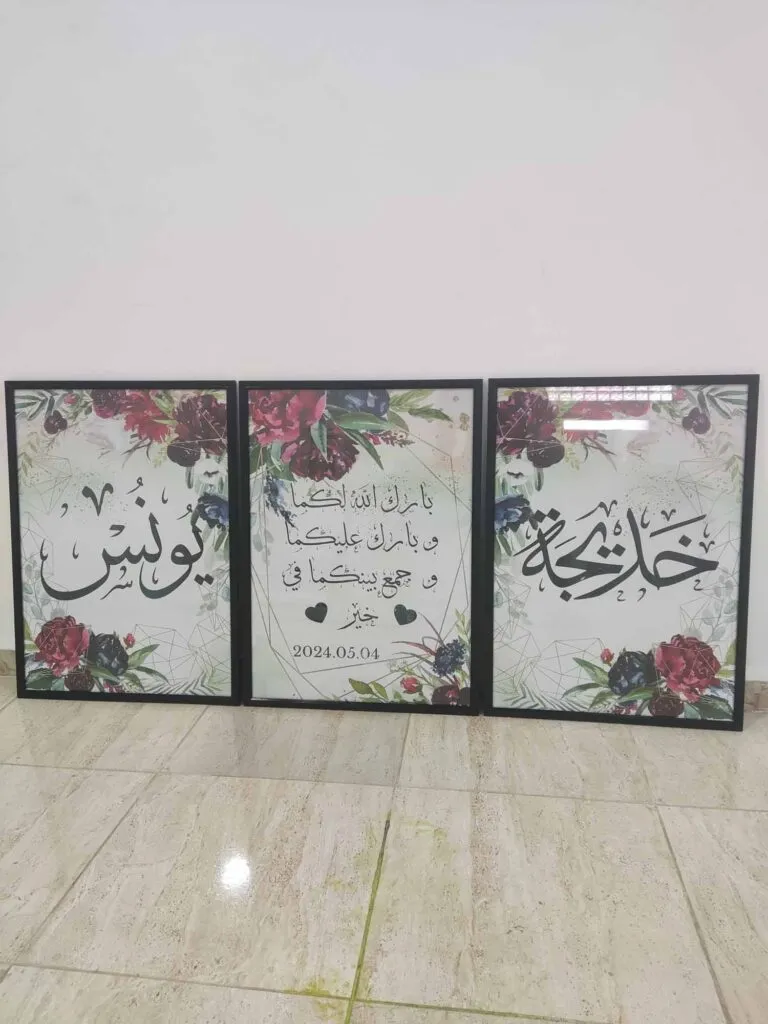 خَديجَة
بارك الله لكما
و بارك عليكما
و جمع بينكما في
خير
2024.05.04
يُونُس